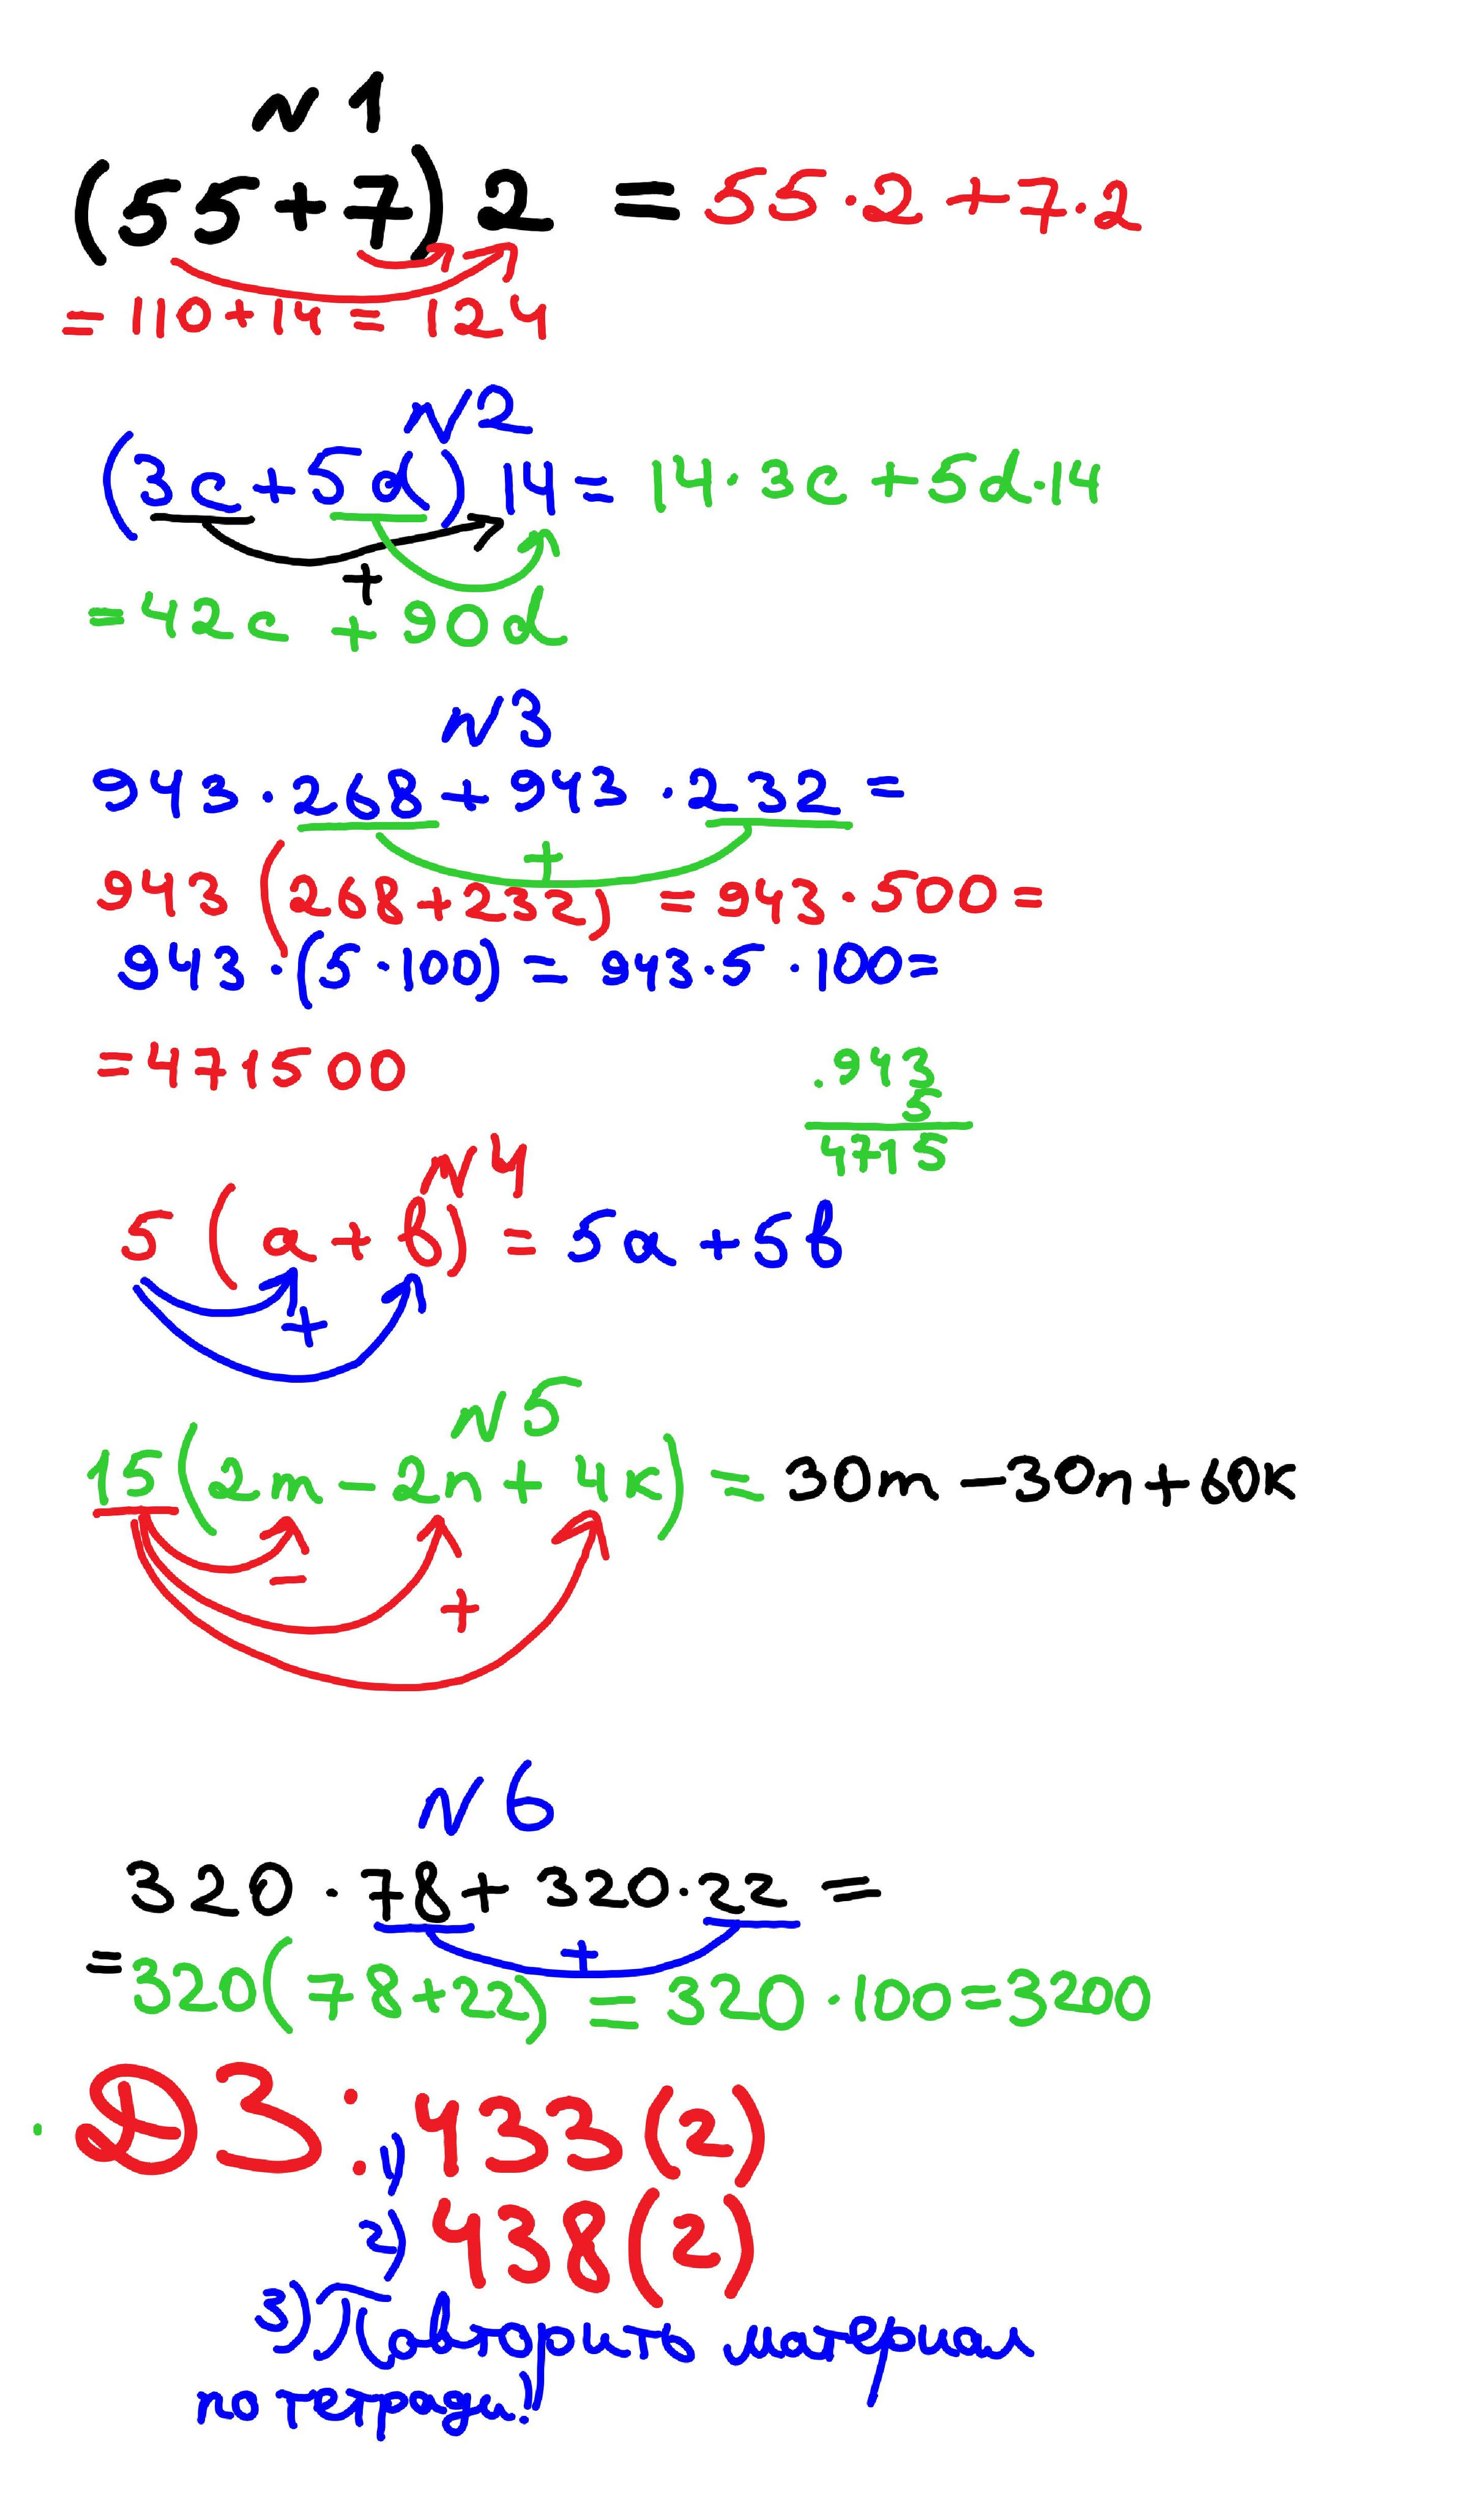 N 1
(55+7)2 = 55·2+7·2
=110+14=124
N2
(3c+5d)14=14·3c+5d·14
+
=42c+90d
N3
943·268+943·232=
+
943(268+232)=943·500=
943·(5·100)=943·5·100=
=471500
.943
5
4715
N4
5(a+b)=5a+5b
+
N5
15(2m-2n+4k)=30m-30n+60k
-
+
N6
320·78+320·22=
+
=320(78+22)=320·100=3200
ДЗ:
1) 433(2)
2) 438(2)
3) Повторить материал
по тетради!